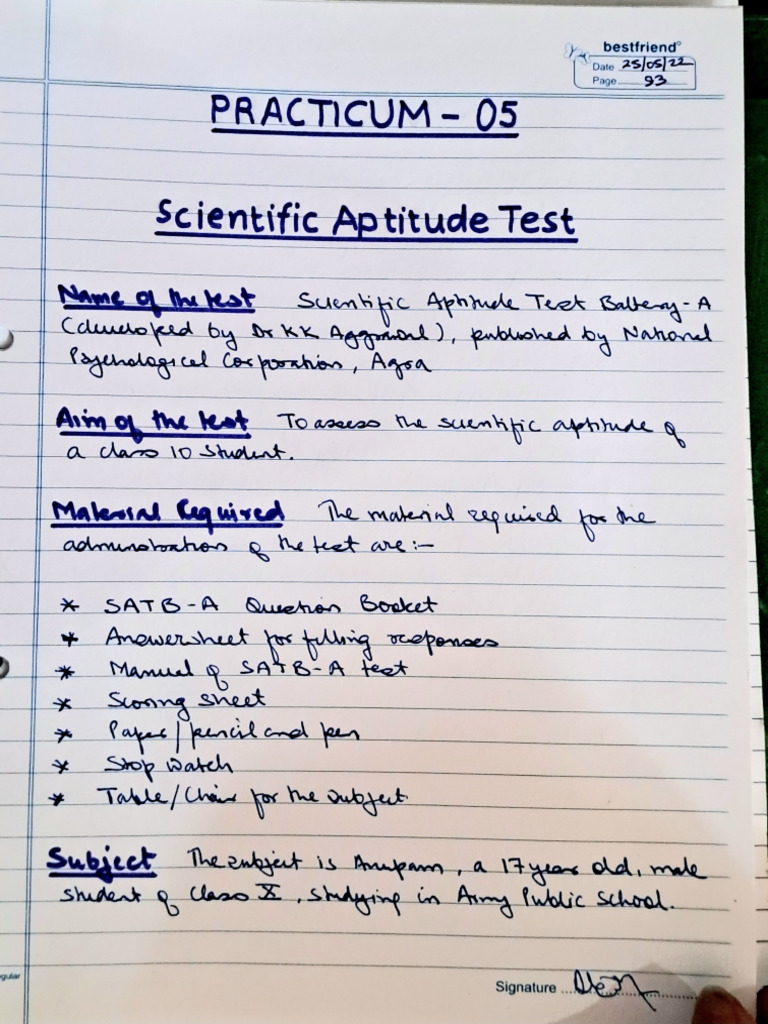 bestfriend
Date 25/05/22
Page 93
PRACTICUM - 05
Scientific Aptitude Test
Name of the test Scientific Aptitude Test Battery - A
(developed by Dr KK Aggarwal), published by National
Psychological Corporation, Agra
Aim of the test To assess the scientific aptitude of
a class 10 student.
Material Required The material required for the
administration of the test are :-
* SATB-A Question Booklet
* Answersheet for filling responses
* Manual of SATB-A test
* Scoring sheet
* Paper/pencil and pen
* Stop watch
* Table/Chair for the subject.
Subject The subject is Anupam, a 17 year old, male
student of Class X, studying in Army Public School.
gular
Signature